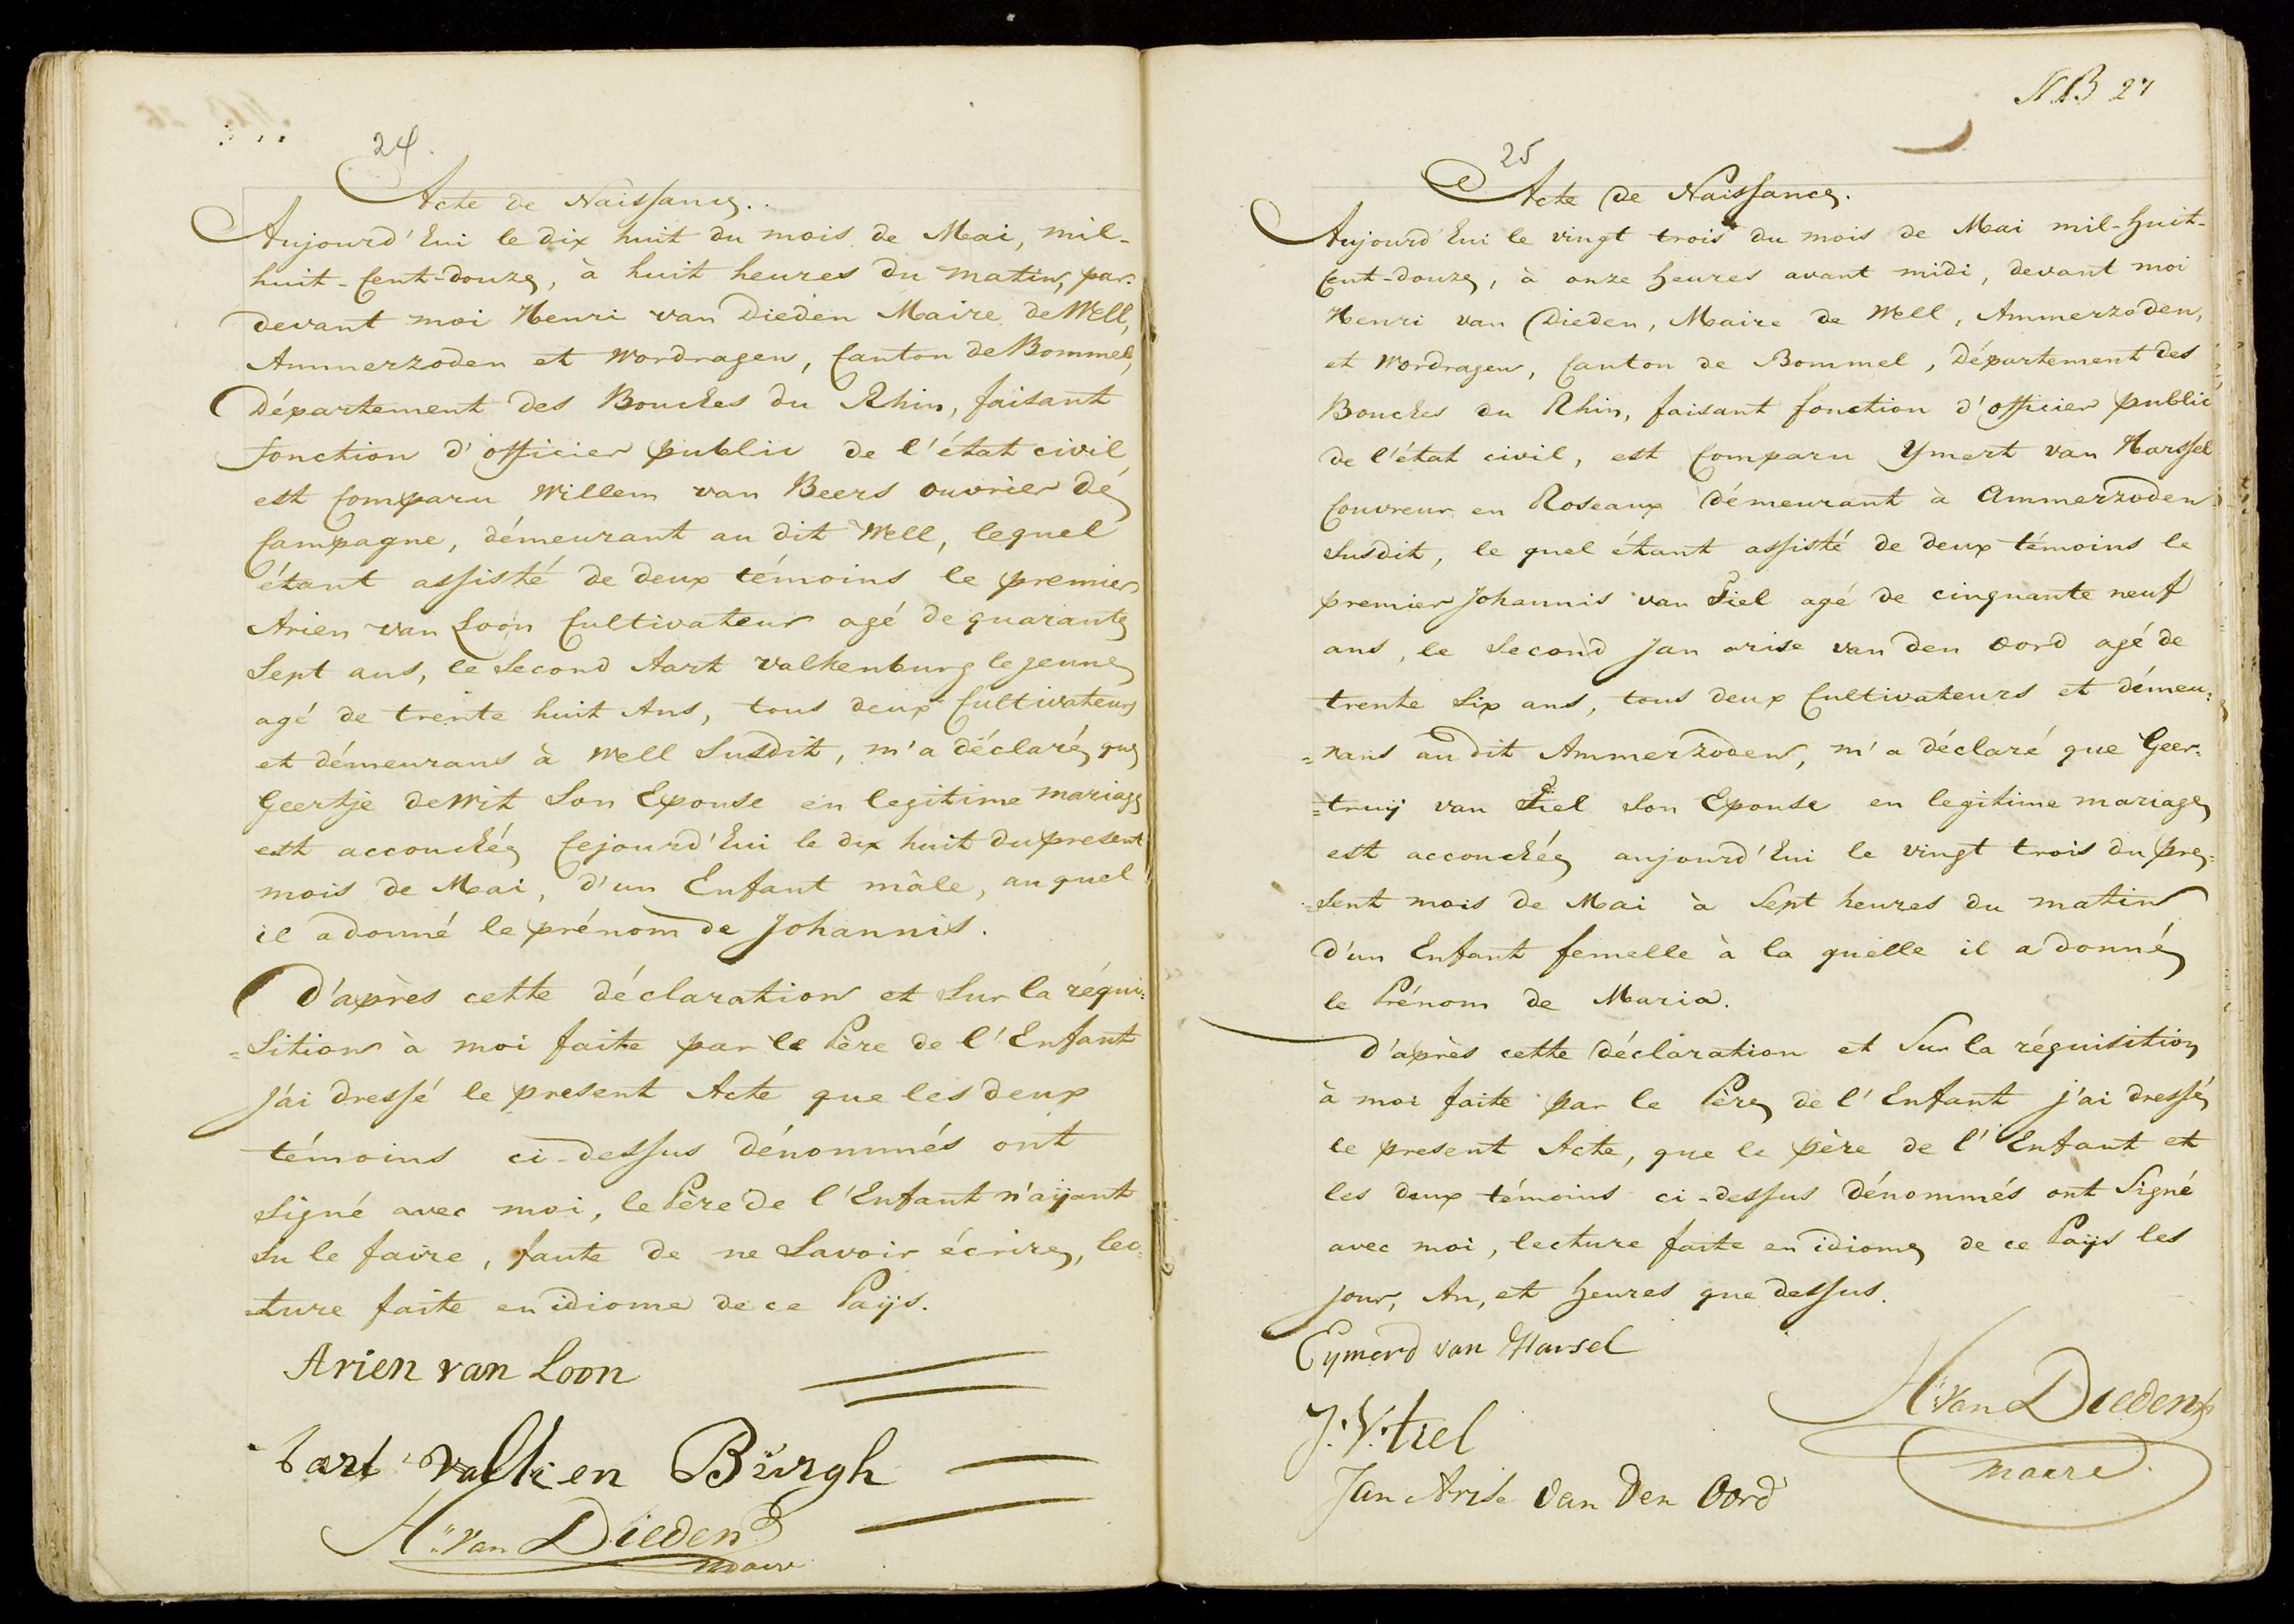 24.
Acte de Naissance.
Aujourd'hui le dix huit du mois de Mai, mil-
huit-Cent-douze, à huit heures du matin, par-
devant moi Henri van Dieden Maire de Well,
Ammerzoden et Wordragen, Canton de Bommel,
Département des Bouches du Rhin, faisant
fonction d'officier public de l'état civil
est Comparu Willem van Beers ouvrier dé
Campagne, démeurant au dit Well, lequel
étant assisté de deux témoins le premier
Arien van Loon Cultivateur agé de quarante
Sept ans, le Second Aart Valkenburg le jeune
agé de trente huit Ans, tous deux Cultivateurs
et démeurans à Well Susdit, m'a déclaré que
Geertje de Wit Son Epouse en legitime mariage
est accouchée Cejourd'hui le dix huit du present
mois de Mai, d'un Enfant mâle, au quel
il a donné le prénom de Johannis.
D'après cette déclaration et Sur la réqui=
=Sition à moi faite par le Père de l'Enfant
J'ai dressé le present Acte que les deux
témoins ci-dessus dénommés ont
Signé avec moi, le Père de l'Enfant n'aÿant
Su le faire, faute de ne Savoir écrire, lec=
=ture faite en idiome de ce Paÿs.
Arien van Loon
Aart Valken Bürgh
H. van Dieden
maire
N.B 27
25
Acte de Naissance.
Aujourd'hui le vingt trois du mois de Mai mil-huit-
Cent-douze, à onze heures avant midi, devant moi
Henri van Dieden, Maire de Well, Ammerzoden,
et Wordragen, Canton de Bommel, Département des
Bouches du Rhin, faisant fonction d'officier public
de l'état civil, est Comparu Ymert van Harssel
Couvreur en Roseaux démeurant à Ammerzoden
Susdit, le quel étant assisté de deux témoins le
premier Johannis van Tiel agé de cinquante neuf
ans, le Second Jan arise van den Oord agé de
trente Six ans, tous deux Cultivateurs et démeu=
=rans au dit Ammerzoden, m'a déclaré que Geer=
=truij van Tiel Son Epouse en legitime mariage
est accouchée aujourd'hui le vingt trois du pre=
=sent mois de Mai à Sept heures du matin
d'un Enfant femelle à la quelle il a donné
le Prénom de Maria.
D'après cette déclaration et Sur la réquisition
à moi faite par le Père de l'Enfant j'ai dressé
le present Acte, que le père de l'Enfant et
les deux témoins ci-dessus dénommés ont Signé
avec moi, lecture faite en idiome de ce Paÿs les
jour, An, et heures que dessus.
Eymerd van Harsel
J. V. tiel
Jan Arise van Den Oord
H. van Dieden
maire.